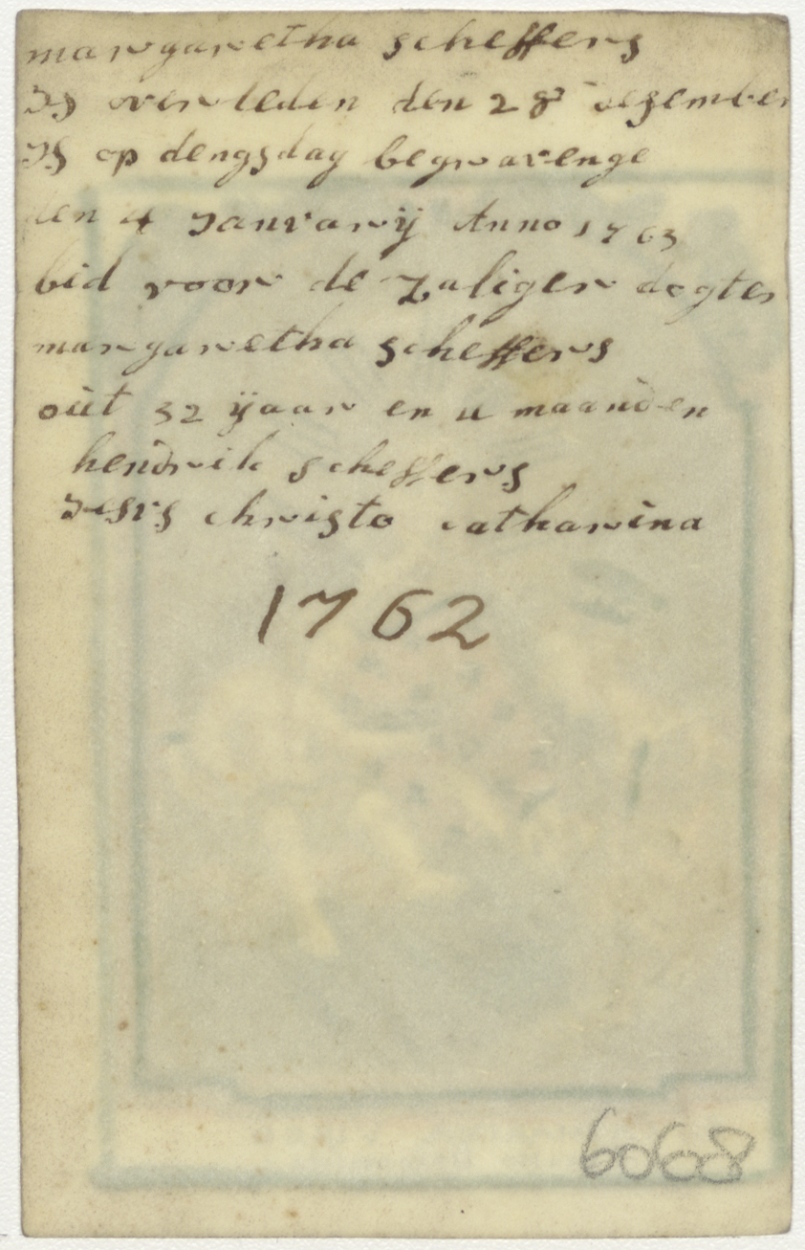 margaretha scheffers
Is overleden den 28 desember
Is op dengsdag begravenge
den 4 Januarij Anno 1763
bid voor de Zaliger dogter
margaretha scheffers
oüt 32 ÿaar en 11 maanden
hendrik scheffers
Jesus christo catharina
1762
6068